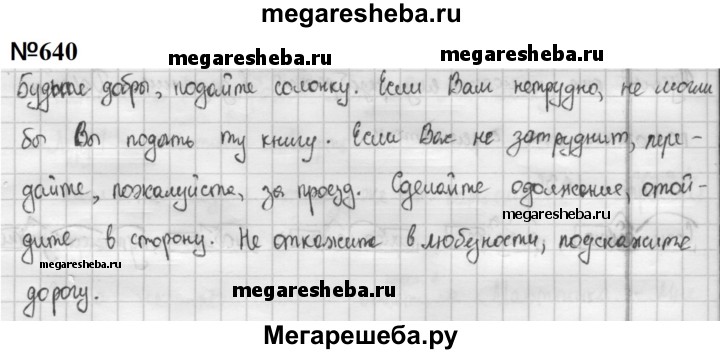 megaresheba.ru
№640
megaresheba.ru
megaresheba.ru
Будьте добры, подайте солонку. Если Вам нетрудно, не могли
бы Вы подать ту книгу. Если Вас не затруднит, пере-
дайте, пожалуйста, за проезд. Сделайте одолжение, отой-
megaresheba.ru
дите в сторону. Не откажите в любезности, подскажите
megaresheba.ru
дорогу.
megaresheba.ru
Мегарешеба.ру